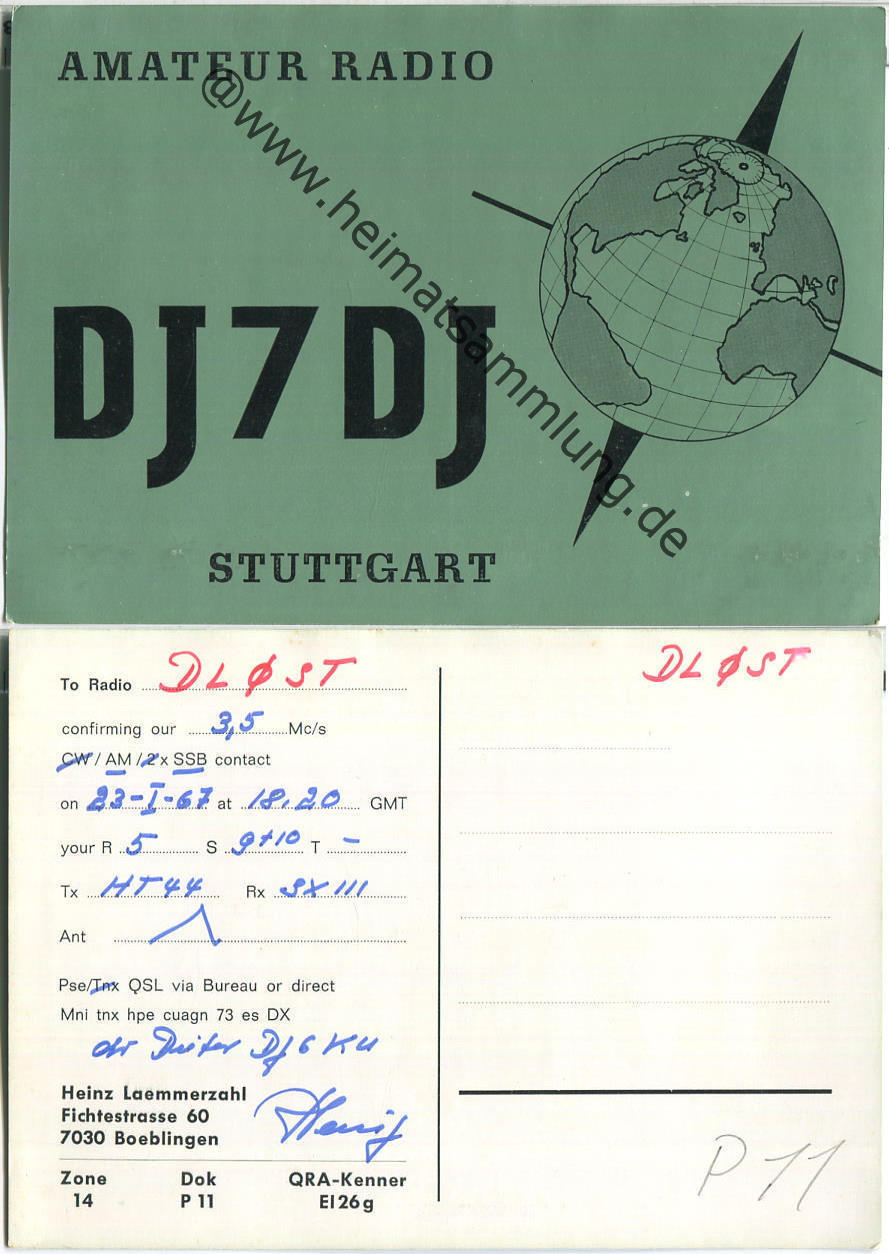 AMATEUR RADIO
@www.heimatsammlung.de
DJ7DJ
STUTTGART
To Radio DLØST
DLØST
confirming our 3,5 Mc/s
CW / AM / 2 x SSB contact
on 23-I-67 at 18.20 GMT
your R 5 S 9+10 T -
Tx HT44 Rx SX111
Ant
Pse/Tnx QSL via Bureau or direct
Mni tnx hpe cuagn 73 es DX
dr Dieter DJ6KU
Heinz Laemmerzahl
Fichtestrasse 60
7030 Boeblingen
Heinz
Zone Dok QRA-Kenner
14 P 11 EI26g
P 11